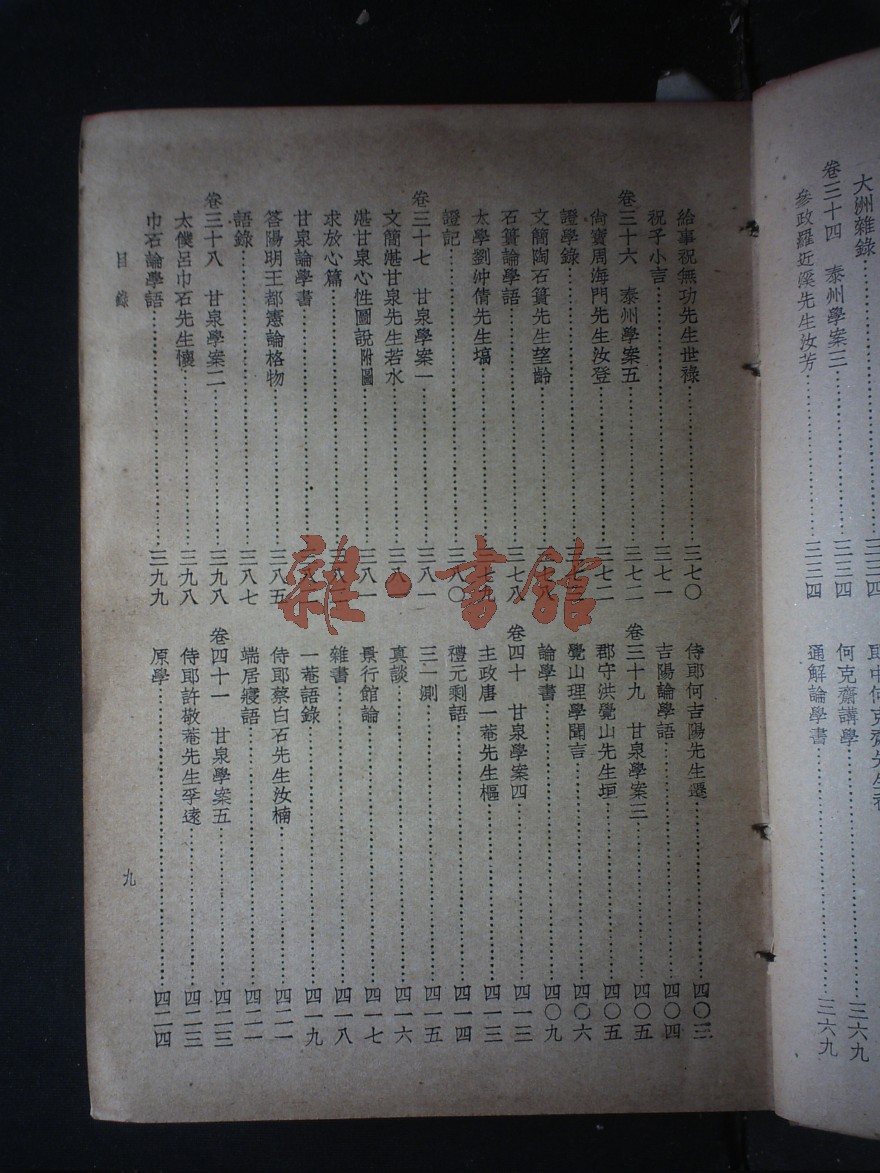 大洲雜錄……三三四
卷三十四　泰州學案三……三三四
參政羅近溪先生汝芳……三三四
何克齋講學……三六九
通解論學書……三六九
給事祝無功先生世祿……三七〇
祝子小言……三七一
卷三十六　泰州學案五……三七二
尚寶周海門先生汝登……三七二
證學錄
文簡陶石簣先生望齡
石簣論學語……三七八
太學劉仲倩先生塙……三七九
證記……三八〇
卷三十七　甘泉學案一……三八一
文簡湛甘泉先生若水……三八一
湛甘泉心性圖說附圖……三八一
求放心篇
甘泉論學書
答陽明王都憲論格物……三八五
語錄……三八七
卷三十八　甘泉學案二……三九八
太僕呂巾石先生懷……三九八
巾石論學語……三九九
侍郎何吉陽先生遷……四〇三
吉陽論學語……四〇四
卷三十九　甘泉學案三……四〇五
郡守洪覺山先生垣……四〇五
覺山理學聞言……四〇六
論學書……四〇九
卷四十　甘泉學案四……四一三
主政唐一菴先生樞……四一三
禮元剩語……四一四
三一測……四一五
真談……四一六
景行館論……四一七
雜書……四一八
一菴語錄……四一九
侍郎蔡白石先生汝楠……四二一
端居寤語……四二一
卷四十一　甘泉學案五……四二三
侍郎許敬菴先生孚遠……四二三
原學……四二四
目錄
九
雜·書館